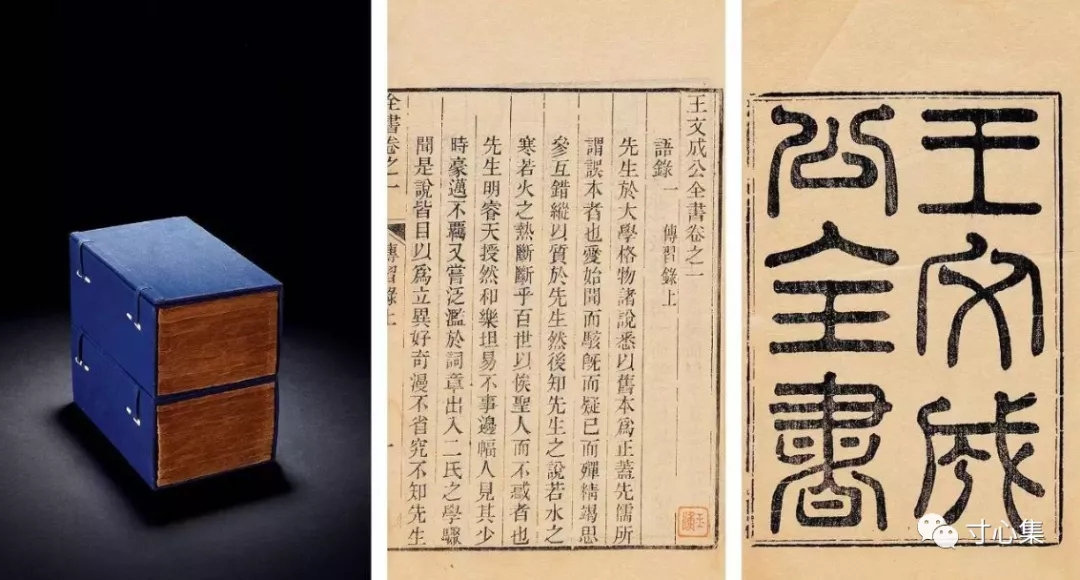 王文成公全書卷之一
語錄一 傳習錄上
先生於大學格物諸說悉以舊本爲正蓋先儒所
謂誤本者也愛始聞而駭旣而疑已而殫精竭思
參互錯縱以質於先生然後知先生之說若水之
寒若火之熱斷斷乎百世以俟聖人而不惑者也
先生明睿天授然和樂坦易不事邊幅人見其少
時豪邁不羈又嘗泛濫於詞章出入二氏之學驟
聞是說皆目以爲立異好奇漫不省究不知先生
全書卷之一 傳習錄上 一
王文成
公全書
寸心集